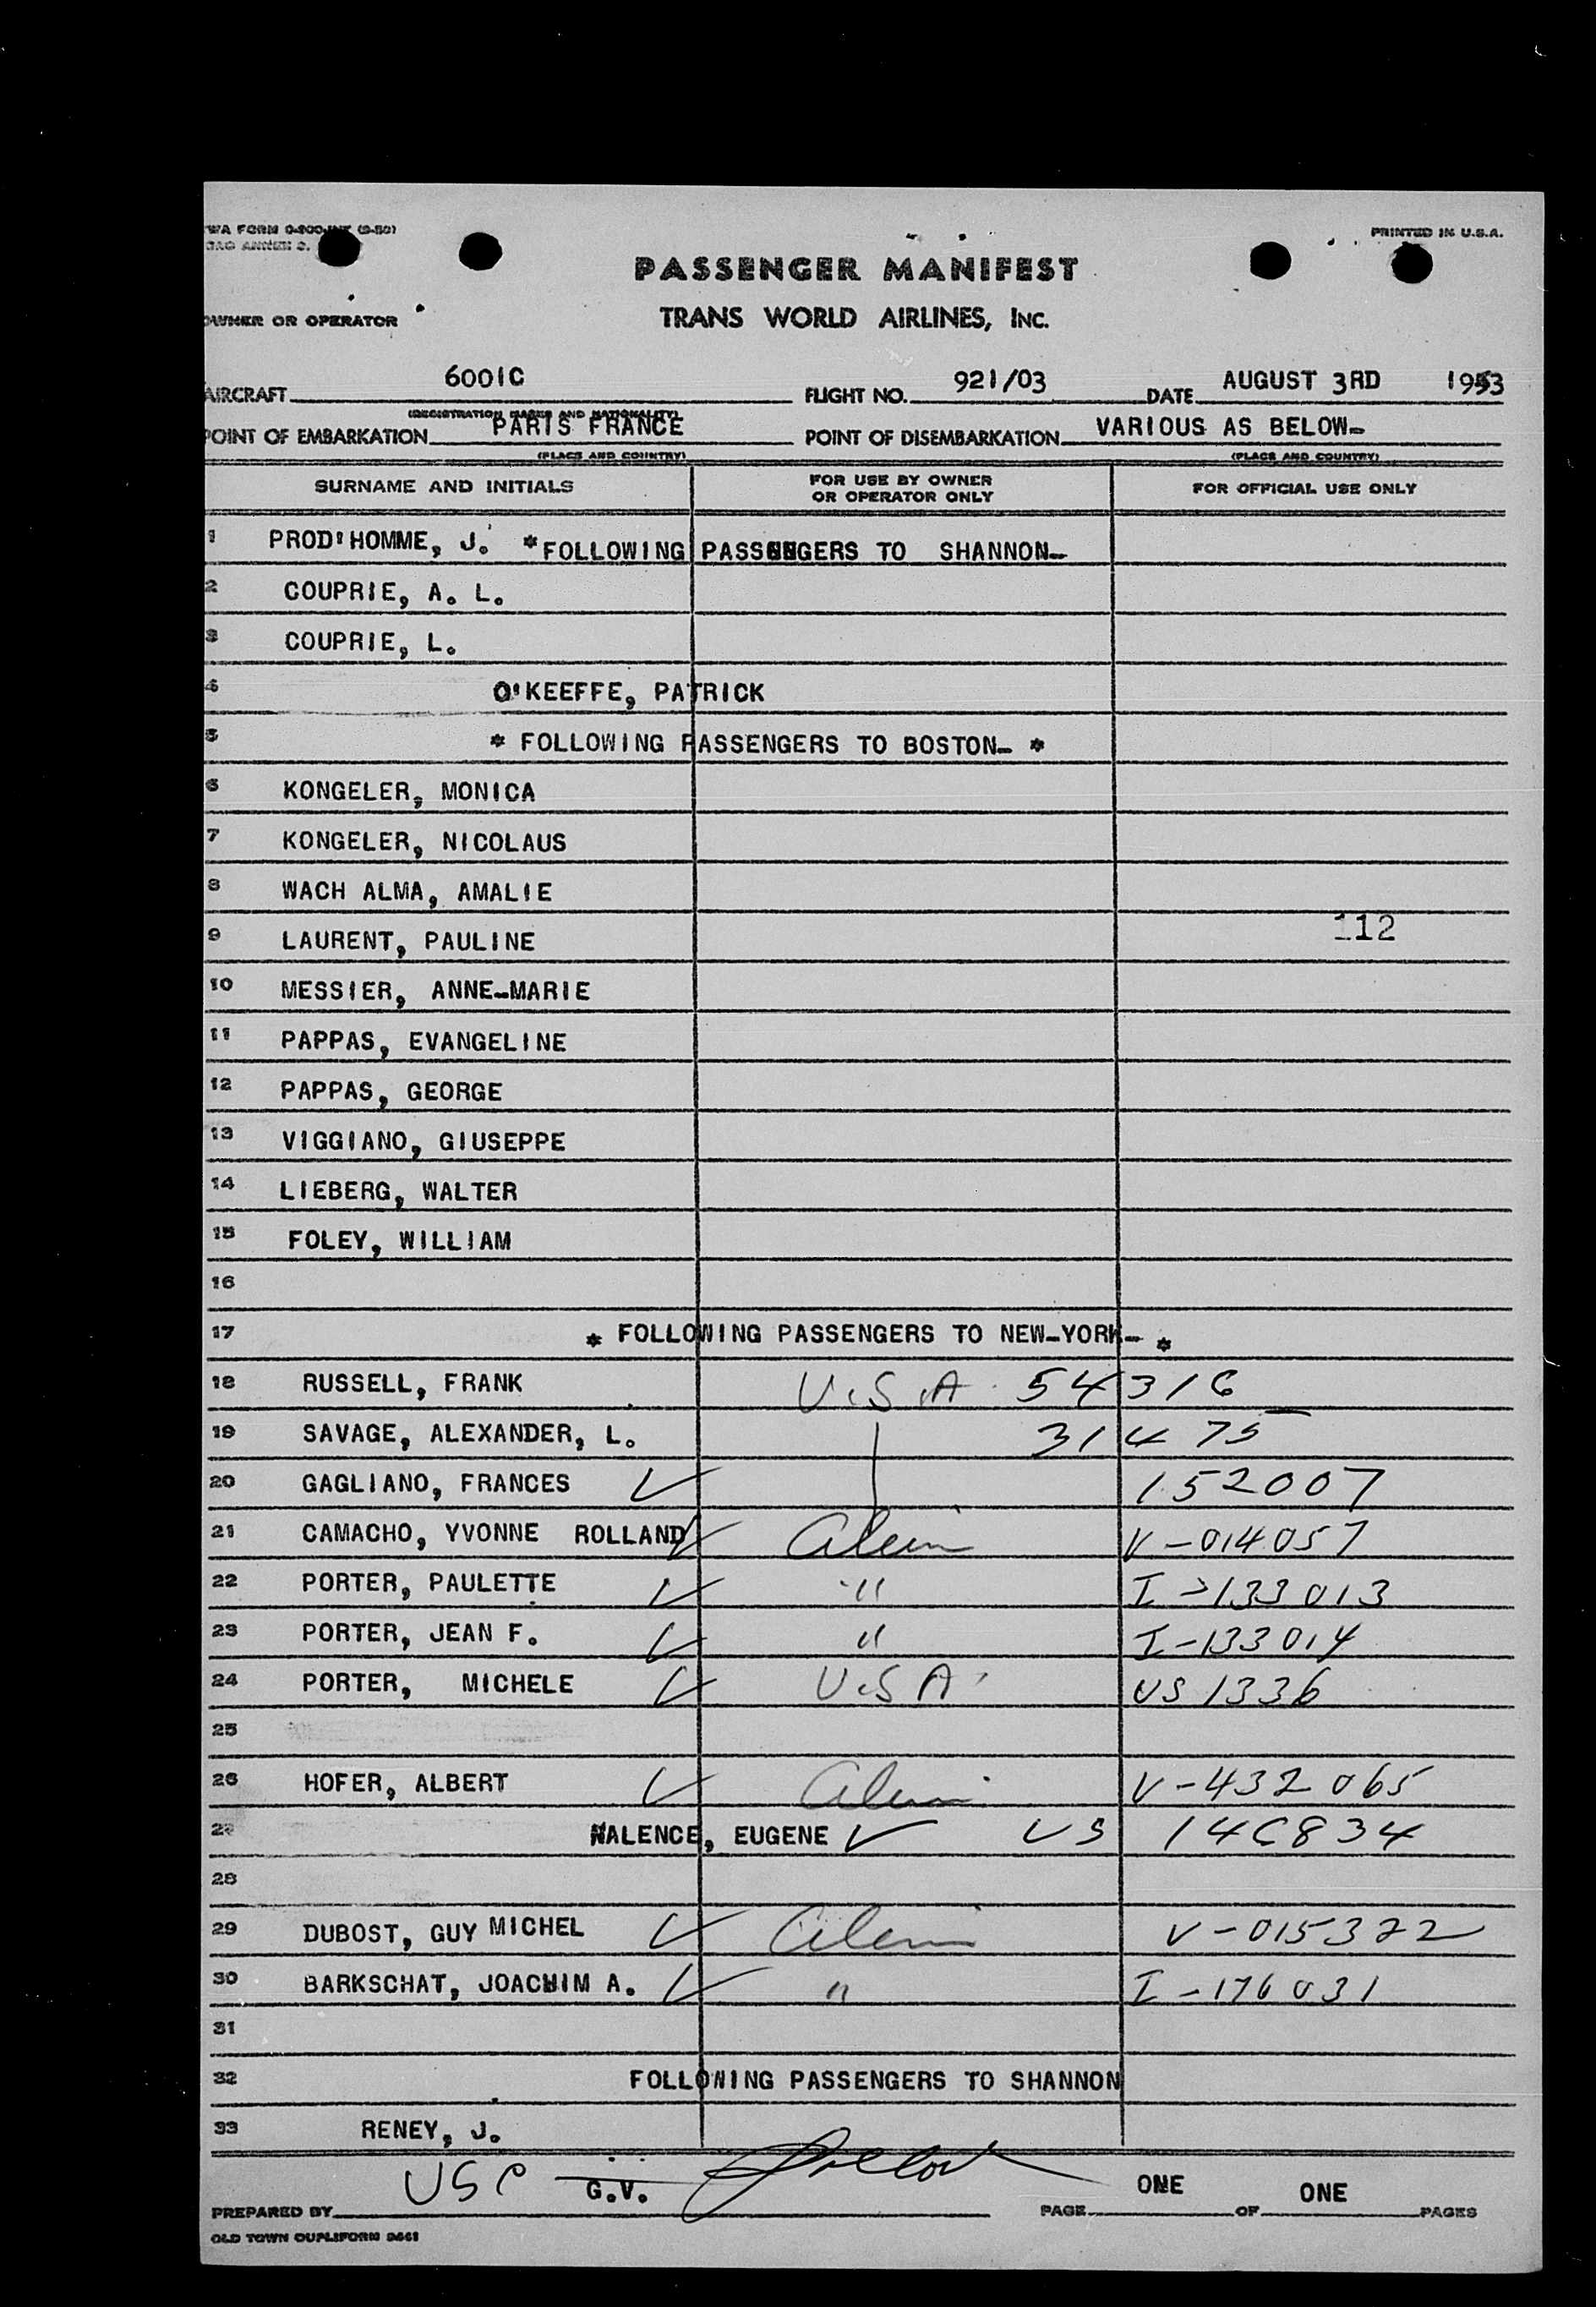 WA FORM O-200-INT (9-50)
CAO ANNEX 9.
PRINTED IN U.S.A.
PASSENGER MANIFEST
OWNER OR OPERATOR TRANS WORLD AIRLINES, INC.
AIRCRAFT 6001C FLIGHT NO. 921/03 DATE AUGUST 3RD 1953
(REGISTRATION MARKS AND NATIONALITY)
POINT OF EMBARKATION PARIS FRANCE POINT OF DISEMBARKATION VARIOUS AS BELOW-
(PLACE AND COUNTRY) (PLACE AND COUNTRY)
SURNAME AND INITIALS FOR USE BY OWNER OR OPERATOR ONLY FOR OFFICIAL USE ONLY
1 PROD'HOMME, J. *FOLLOWING PASSENGERS TO SHANNON-
2 COUPRIE, A. L.
3 COUPRIE, L.
4 O'KEEFFE, PATRICK
5 * FOLLOWING PASSENGERS TO BOSTON- *
6 KONGELER, MONICA
7 KONGELER, NICOLAUS
8 WACH ALMA, AMALIE
9 LAURENT, PAULINE 112
10 MESSIER, ANNE-MARIE
11 PAPPAS, EVANGELINE
12 PAPPAS, GEORGE
13 VIGGIANO, GIUSEPPE
14 LIEBERG, WALTER
15 FOLEY, WILLIAM
16
17 * FOLLOWING PASSENGERS TO NEW-YORK- *
18 RUSSELL, FRANK U.S.A. 54316
19 SAVAGE, ALEXANDER, L. 31475
20 GAGLIANO, FRANCES ✓ 152007
21 CAMACHO, YVONNE ROLLAND ✓ Alien V-014057
22 PORTER, PAULETTE ✓ " I-133013
23 PORTER, JEAN F. ✓ " I-133014
24 PORTER, MICHELE ✓ U.S.A. US 1336
25
26 HOFER, ALBERT ✓ Alien V-432065
27 MALENCE, EUGENE ✓ US 146834
28
29 DUBOST, GUY MICHEL ✓ Alien V-015322
30 BARKSCHAT, JOACHIM A. ✓ " I-176031
31
32 FOLLOWING PASSENGERS TO SHANNON
33 RENEY, J.
USC
PREPARED BY G.V. PAGE ONE OF ONE PAGES
OLD TOWN DUPLIFORM